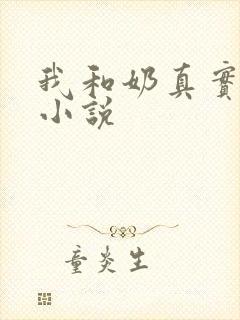 我和奶真實
小說
童炎生